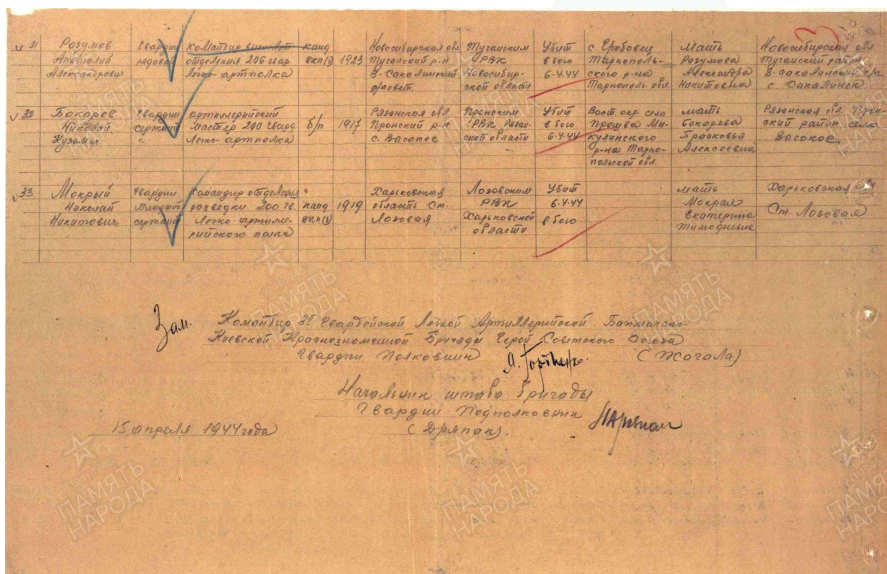 31 Розумов Анатолий Александрович
Гвардии рядовой
отделения 206 гвар. Легко-артполка
канд вкп(б)
1923
Новосибирская обл Туганский р-н
Туганским РВК Новосибирской области
Убит в бою 6.4.44
Тарнопольского р-на Тарнополь обл.
мать Розумова Александра Никитовна
Новосибирская обл Туганский район
32
Николай Кузьмич
Гвардии сержант
артиллерийский мастер 200 гвард Легко артполка
б/п
1917
Рязанская обл Пронский р-н с. Высокое
Пронским РВК Рязанской области
Убит в бою 6-4.44
Вост окр село
Микулинского р-на Тарнопольской обл.
мать
Алексеевна
Рязанская обл. Пронский район село Высокое
33 Мокрый Николай Никитович
Гвардии младший сержант
командир отделения разведки 200 гв. Легко артиллерийского полка
канд вкп(б)
1919
Харьковская область ст. Лозовая
Лозовским РВК Харьковской области
Убит 6-4.44 в бою
мать Мокрая Екатерина Тимофеевна
Харьковская
Ст. Лозовая
Зам. Командир 3й Гвардейской Легкой Артиллерийской Бахмачско-
Киевской Краснознаменной Бригады Герой Советского Союза
Гвардии Полковник (Жогала)
Начальник штаба бригады
Гвардии Подполковник
15 апреля 1944 года (Дряпак).
ПАМЯТЬ НАРОДА